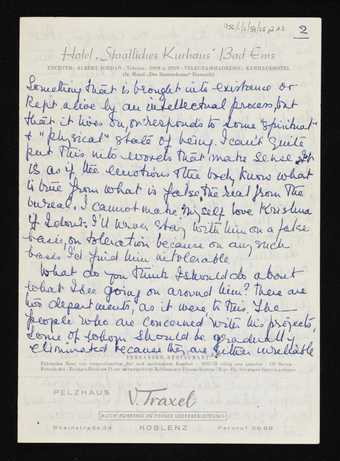 2
Hotel „Staatliches Kurhaus" Bad Ems
Something that is brought into existence or
kept alive by an intellectual process, but
that it lives on, or responds to some "spiritual"
& "physical" state of being. I can't quite
put this into words that make sense. It
is as if the emotions & the body knows what
is true from what is false, the real from the
unreal. I cannot make myself love Krishna
if I don't. I'll never stay with him on a false
basis, on toleration because on any such
basis I'd find him intolerable
What do you think I should do about
what I see going on around him? There are
two departments, as it were, to this. The
people who are concerned with his projects,
some of whom should be gradually
eliminated because they are either unreliable
PELZHAUS V. Traxel
KOBLENZ